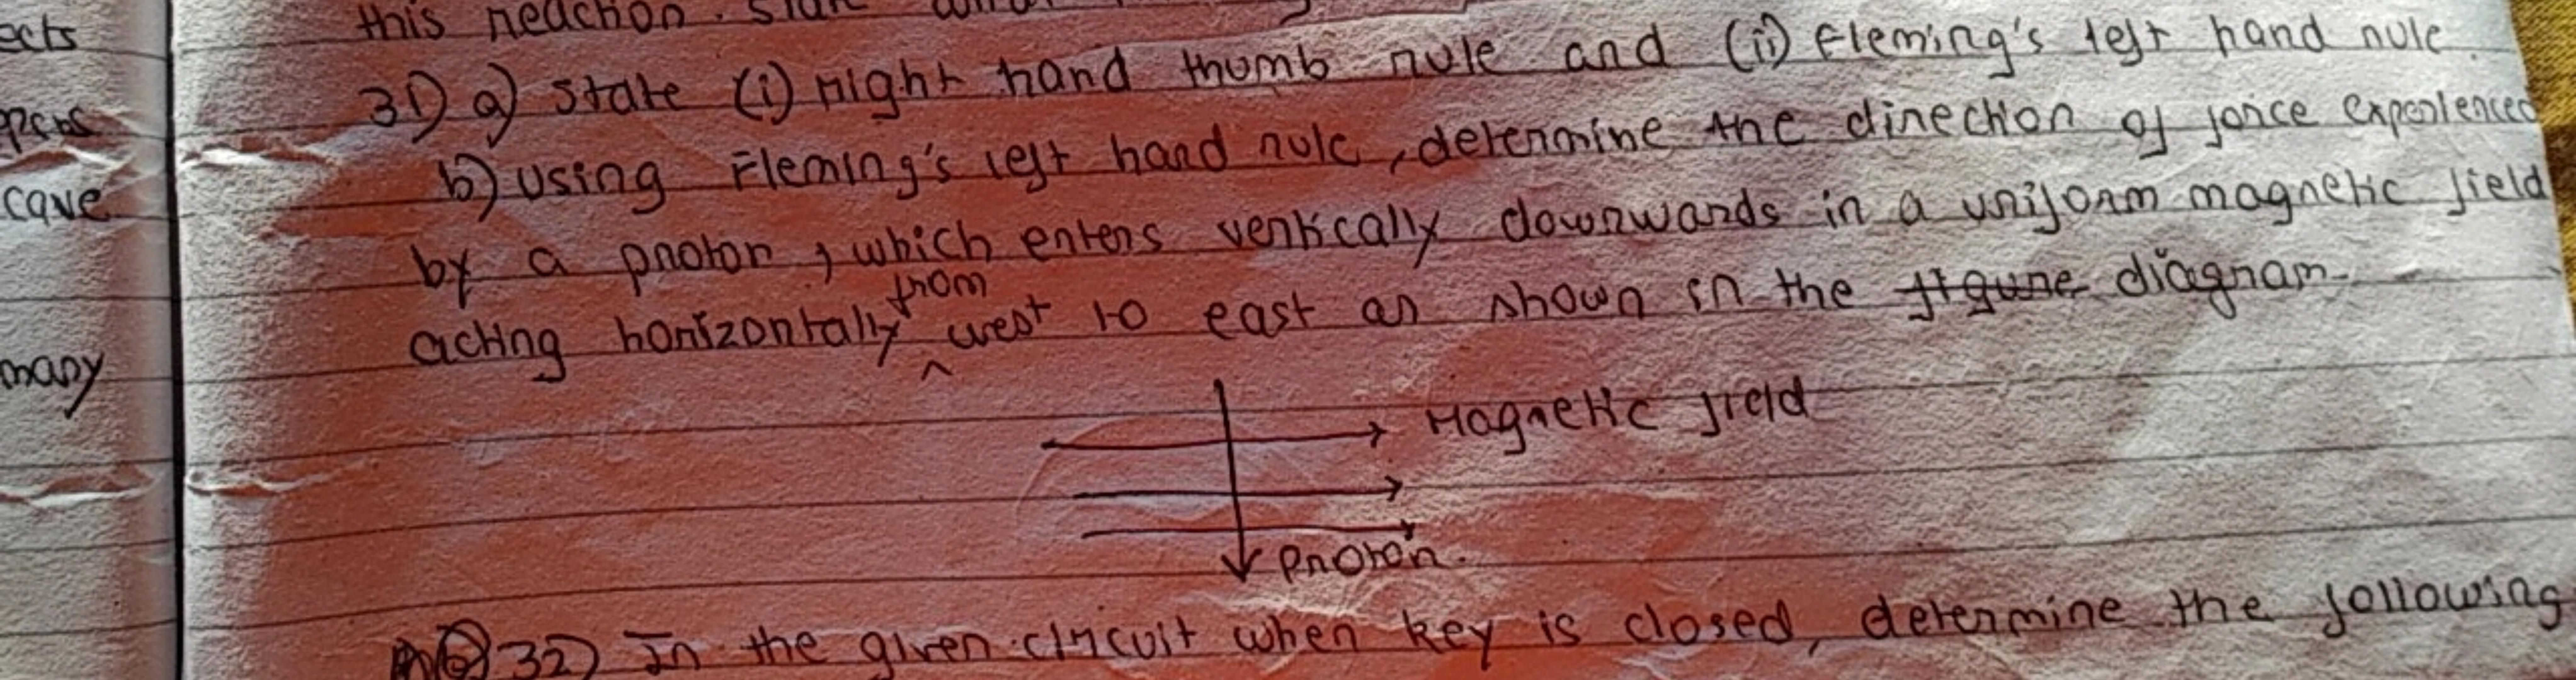 ects
cave
many
this reaction. State
31) a) State (i) right hand thumb rule and (ii) Fleming's left hand rule.
b) Using Fleming's left hand rule, determine the direction of force experienced
by a proton, which enters vertically downwards in a uniform magnetic field
acting horizontally from west to east as shown in the figure diagram
Magnetic field
proton.
32) In the given circuit when key is closed, determine the following